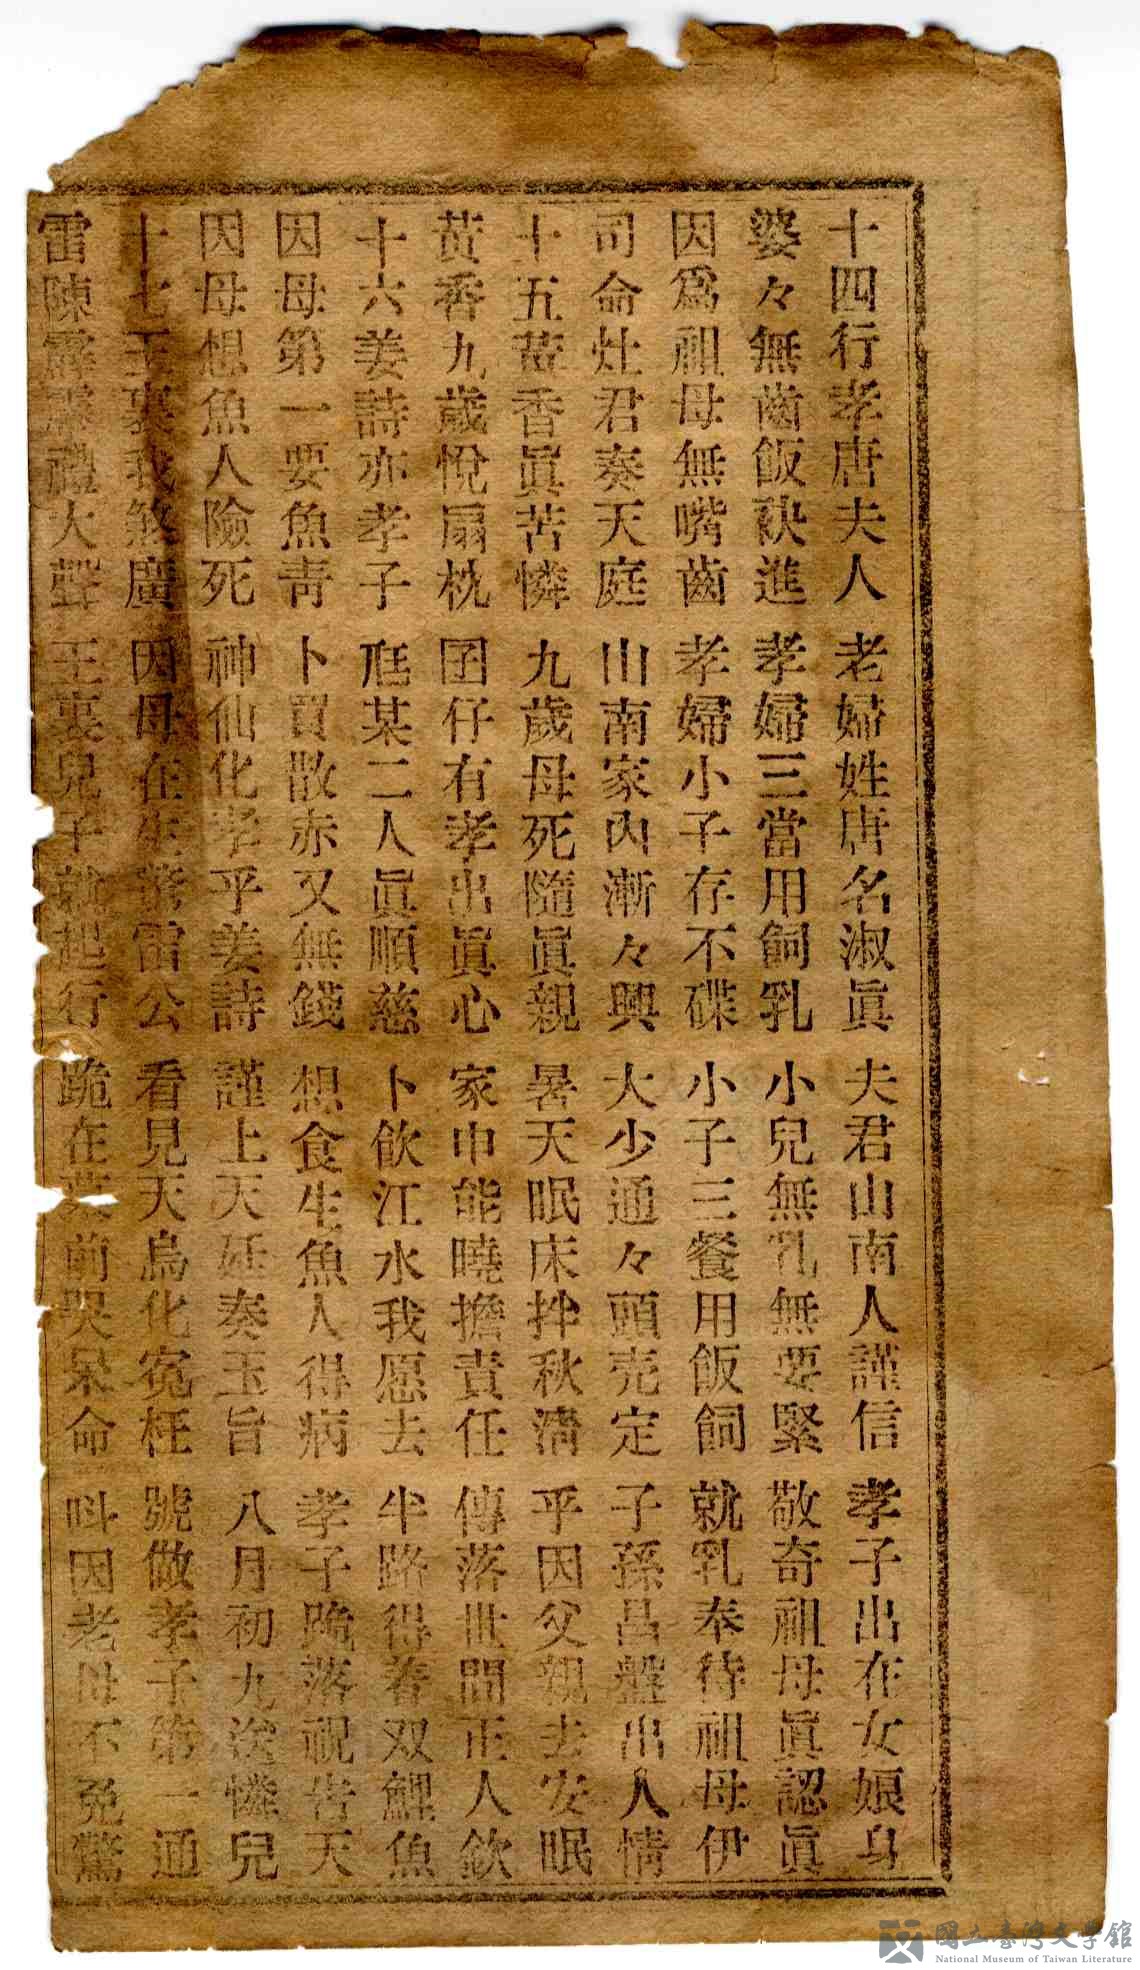 十四行孝唐夫人 老婦姓唐名淑眞 夫君山南人謹信 孝子出在女娘身
婆々無齒飯𫧃進 孝婦三當用飼乳 小兒無乳無要緊 敬奇祖母眞認眞
因爲祖母無嘴齒 孝婦小子存不碟 小子三餐用飯飼 就乳奉待祖母伊
司命灶君奏天庭 山南家內漸々興 大少通々頭売定 子孫昌盤出人情
十五黃香眞苦憐 九歲母死隨眞親 暑天眠床拌秋凊 乎因父親去安眠
黃香九歲悅扇枕 囝仔有孝出眞心 家中能曉擔責任 傳落世間正人欽
十六姜詩亦孝子 尫某二人眞順慈 卜飲江水我愿去 半路得着双鯉魚
因母第一要魚靑 卜買散赤又無錢 想食生魚人得病 孝子跪落祝告天
因母想魚人險死 神仙化孝乎姜詩 謹上天廷奏玉旨 八月初九送憐兒
十七王裒我煞廣 因母在生驚雷公 看見天烏化冤枉 號做孝子第一通
雷陳霹靂禮大聲 王裒兒子就起行 跪在墓前哭呆命 叫因老母不免驚
國立臺灣文學館
National Museum of Taiwan Literature